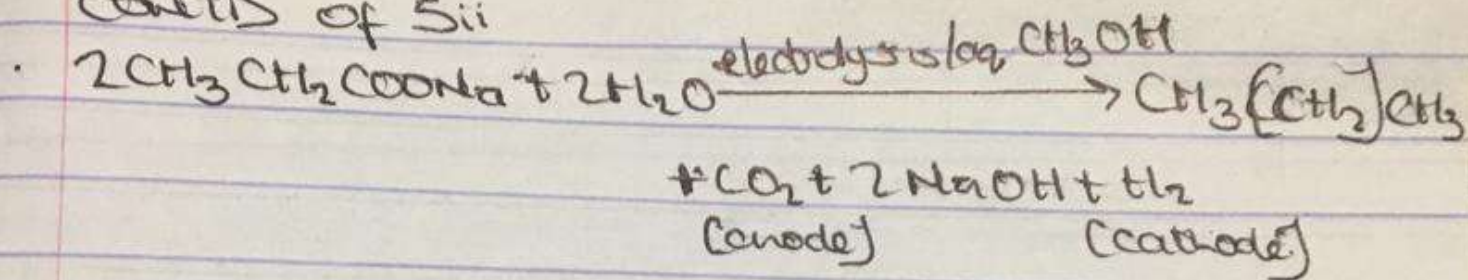 of 5ii
. 2CH₃CH₂COONa + 2H₂O electrolysis/aq CH₃OH → CH₃[CH₂]CH₃
+ CO₂ + 2NaOH + H₂
(anode) (cathode)